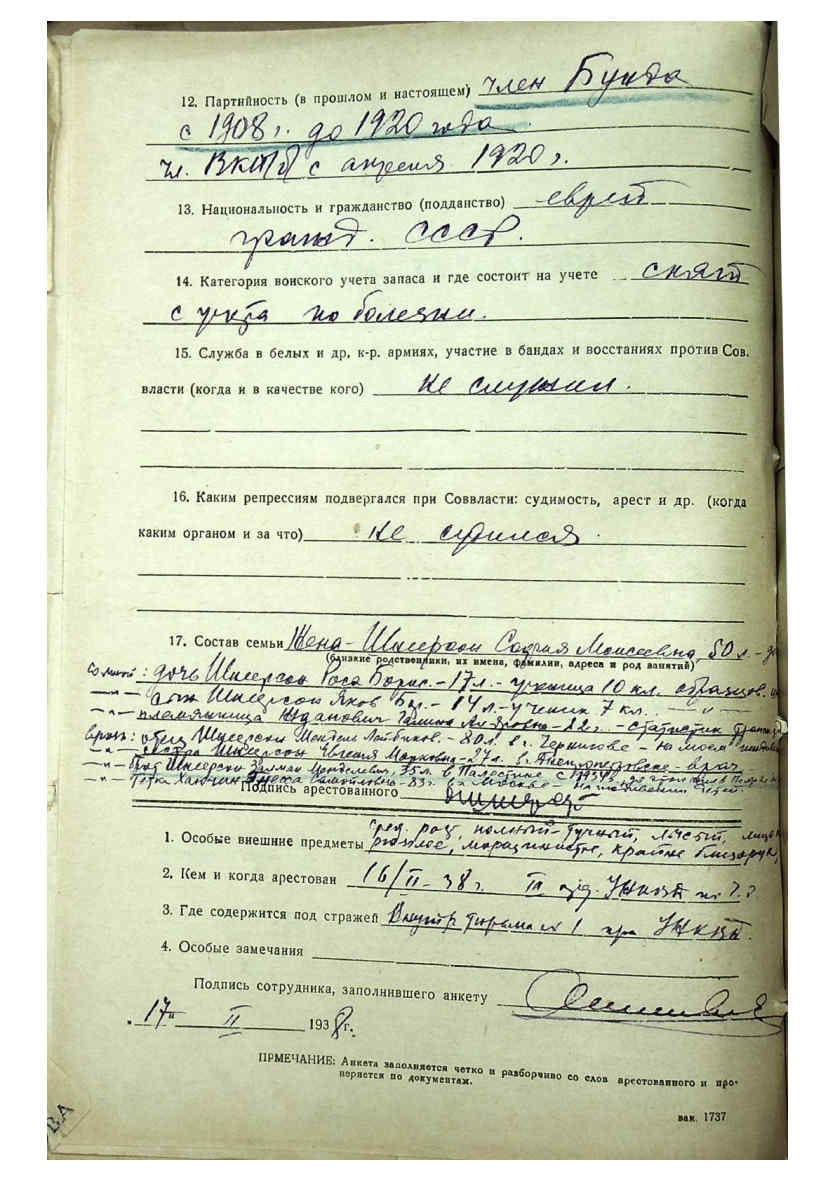 12. Партийность (в прошлом и настоящем) член Бунда
с 1908 г. до 1920 года
чл. ВКПб с апреля 1920 г.
13. Национальность и гражданство (подданство) еврей
гражд. СССР.
14. Категория воинского учета запаса и где состоит на учете снят
с учета по болезни.
15. Служба в белых и др. к-р. армиях, участие в бандах и восстаниях против Сов.
власти (когда и в качестве кого) не служил.
16. Каким репрессиям подвергался при Соввласти: судимость, арест и др. (когда
каким органом и за что) не судился.
17. Состав семьи Жена - Шнеерсон София Моисеевна, 50 л. -
(близкие родственники, их имена, фамилии, адреса и род занятий)
со мной: дочь Шнеерсон Роза Борис. - 17 л. - ученица 10 кл. образцов.
-"- сын Шнеерсон Яков Бор. - 14 л. - ученик 7 кл. -"-
-"- племянница Жданович Галина - 22 г. - статистик
отец Шнеерсон Мендель - 80 л. в г. Чернигове - на моем
-"- сестра Шнеерсон Евгения Марковна - 37 л. в Днепропетровске - врач
-"- брат Шнеерсон Залман Менделевич, 35 л. в Палестине с
-"- Тетка 83 г. в Москве -
Подпись арестованного
1. Особые внешние предметы сред. рост, полный - тучный, лысый, лицо
круглое, морщинистое, крайне близорук,
2. Кем и когда арестован 16/II-38 г. III отд. УНКВД по
3. Где содержится под стражей Внутр тюрьма № 1 при УНКВД.
4. Особые замечания
Подпись сотрудника, заполнившего анкету
"17" II 1938 г.
ПРМЕЧАНИЕ: Анкета заполняется четко и разборчиво со слов арестованного и про-
веряется по документам.
вак. 1737
ВА